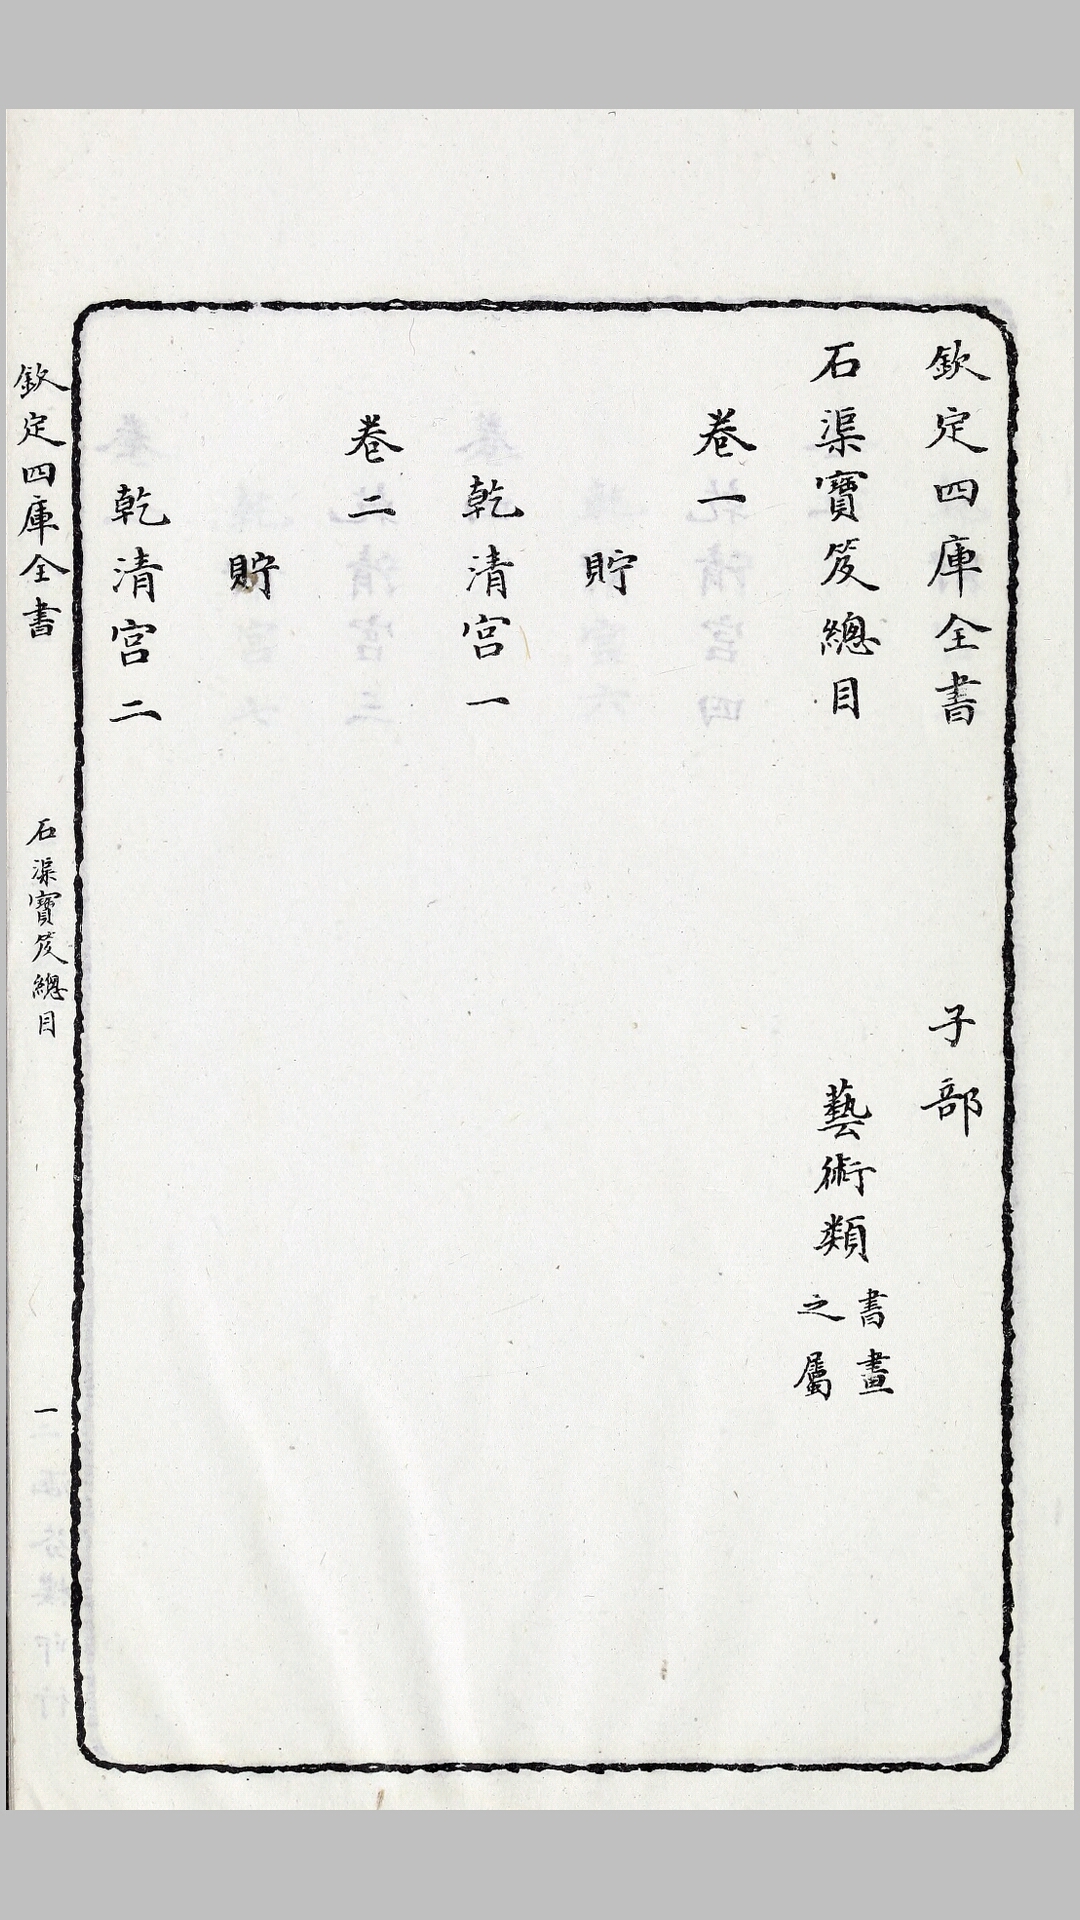 欽定四庫全書 子部
石渠寶笈總目 藝術類書畫之屬
卷一
貯
乾清宮一
卷二
貯
乾清宮二
欽定四庫全書 石渠寶笈總目 一